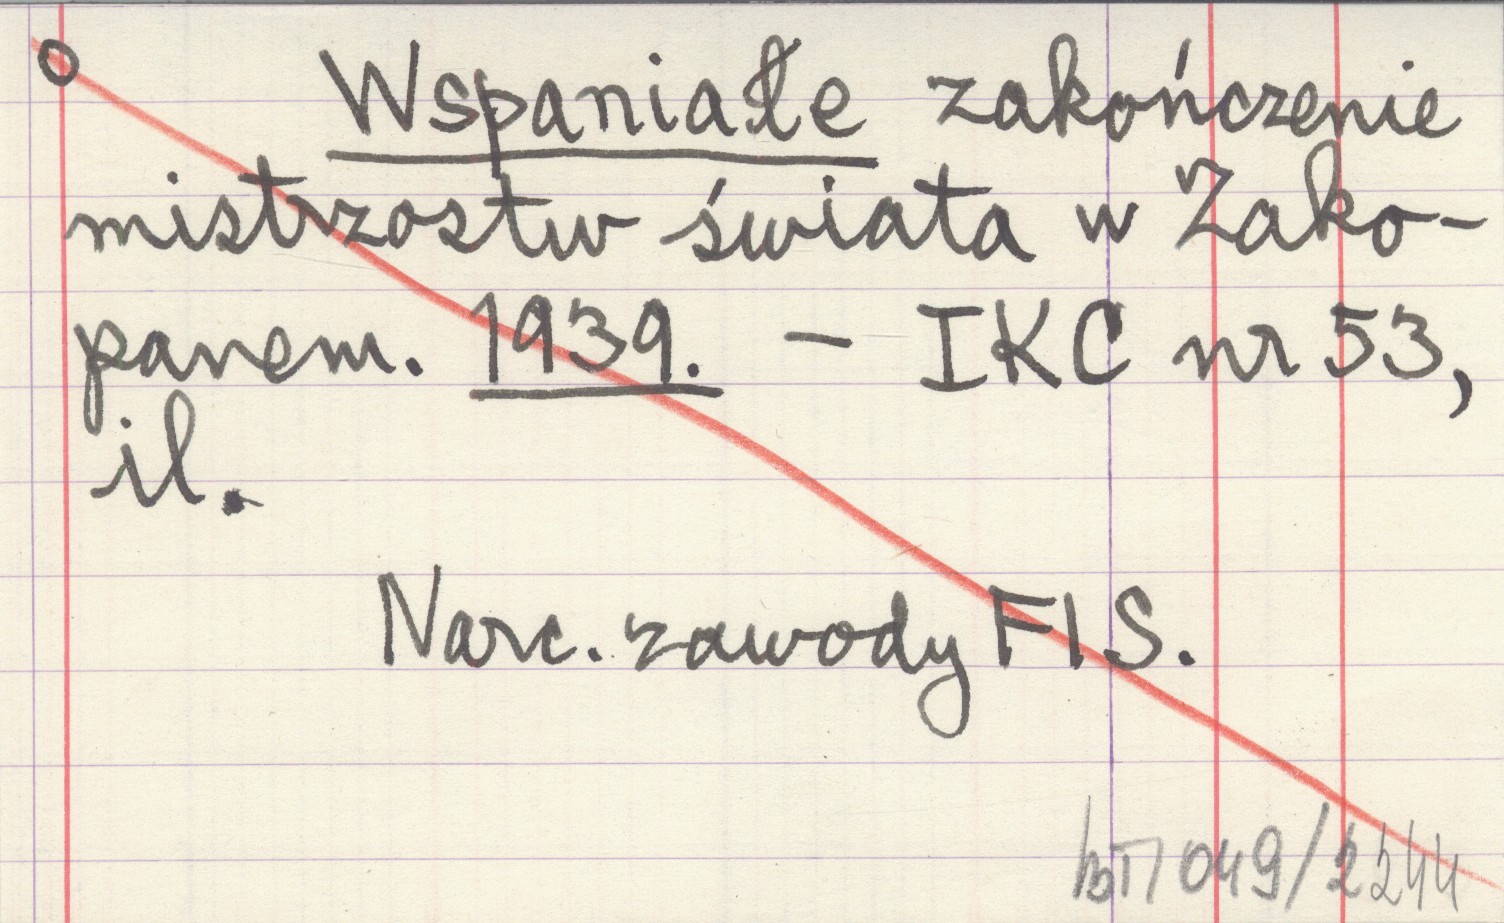 o
Wspaniałe zakończenie
mistrzostw świata w Zako-
panem. 1939. – IKC nr 53,
il.
Narc. zawody FIS.
049/2244